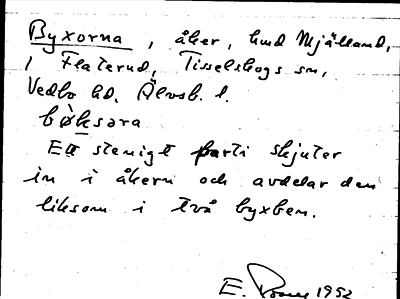 Byxorna, åker, hmd Mjälland,
i Flaterud, Tisselskogs sn,
Vedbo hd. Älvsb. l.
bøksara
Ett stenigt parti skjuter
in i åkern och avdelar den
liksom i två byxben.
E. 1952